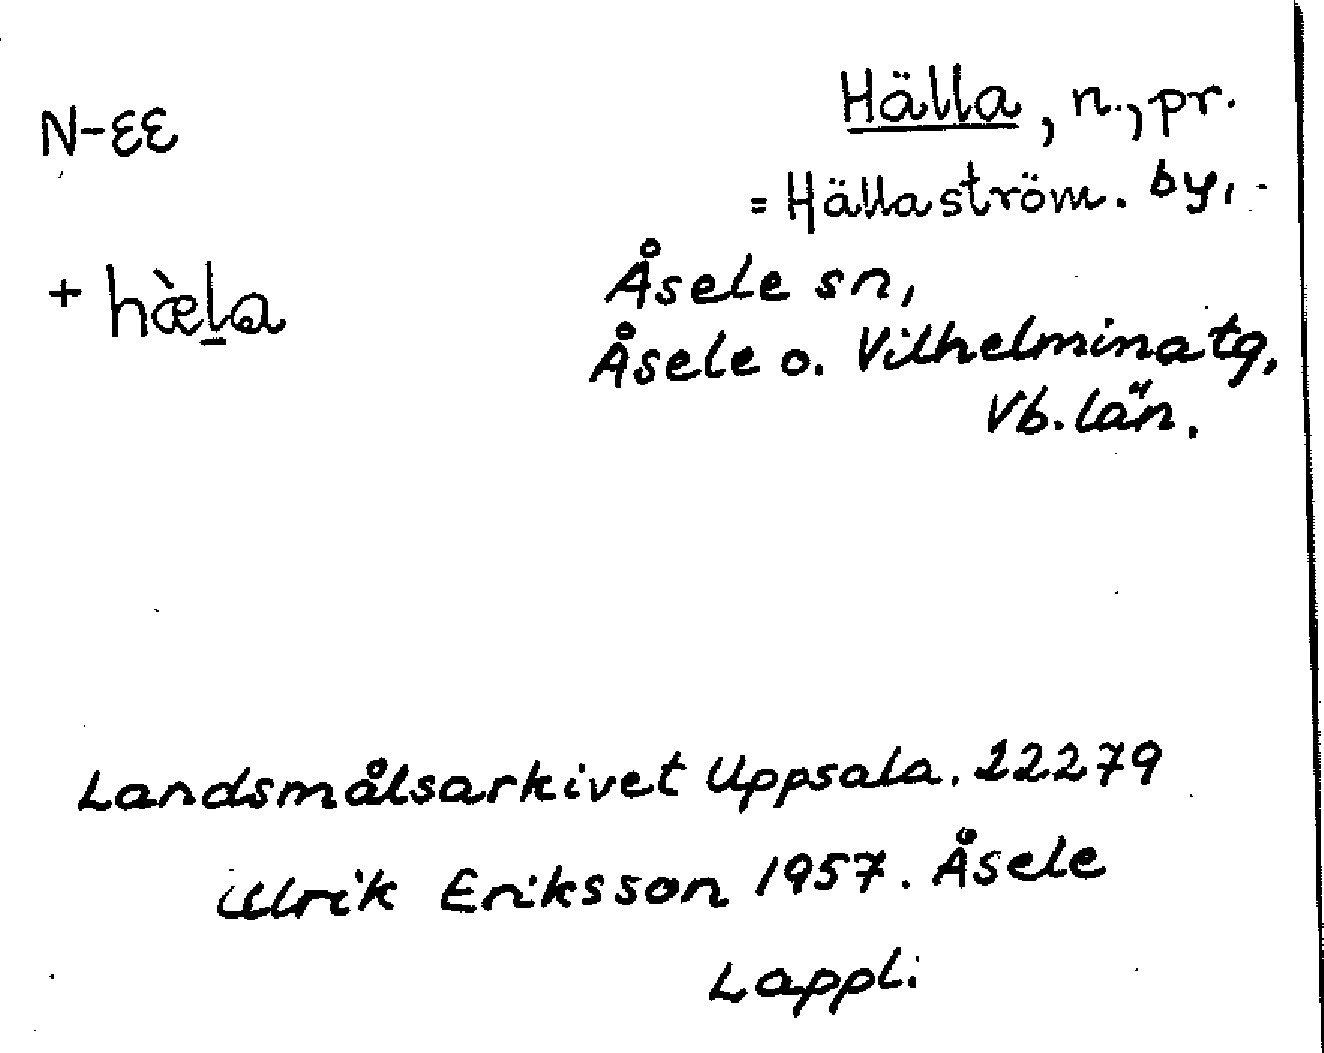 N-εε
Hälla, n., pr.
= Hällaström. by,
+ hæ̀l̠a
Åsele sn,
Åsele o. Vilhelmina tg,
Vb. län.
Landsmålsarkivet Uppsala. 22279
Ulrik Eriksson 1957. Åsele
Lappl.